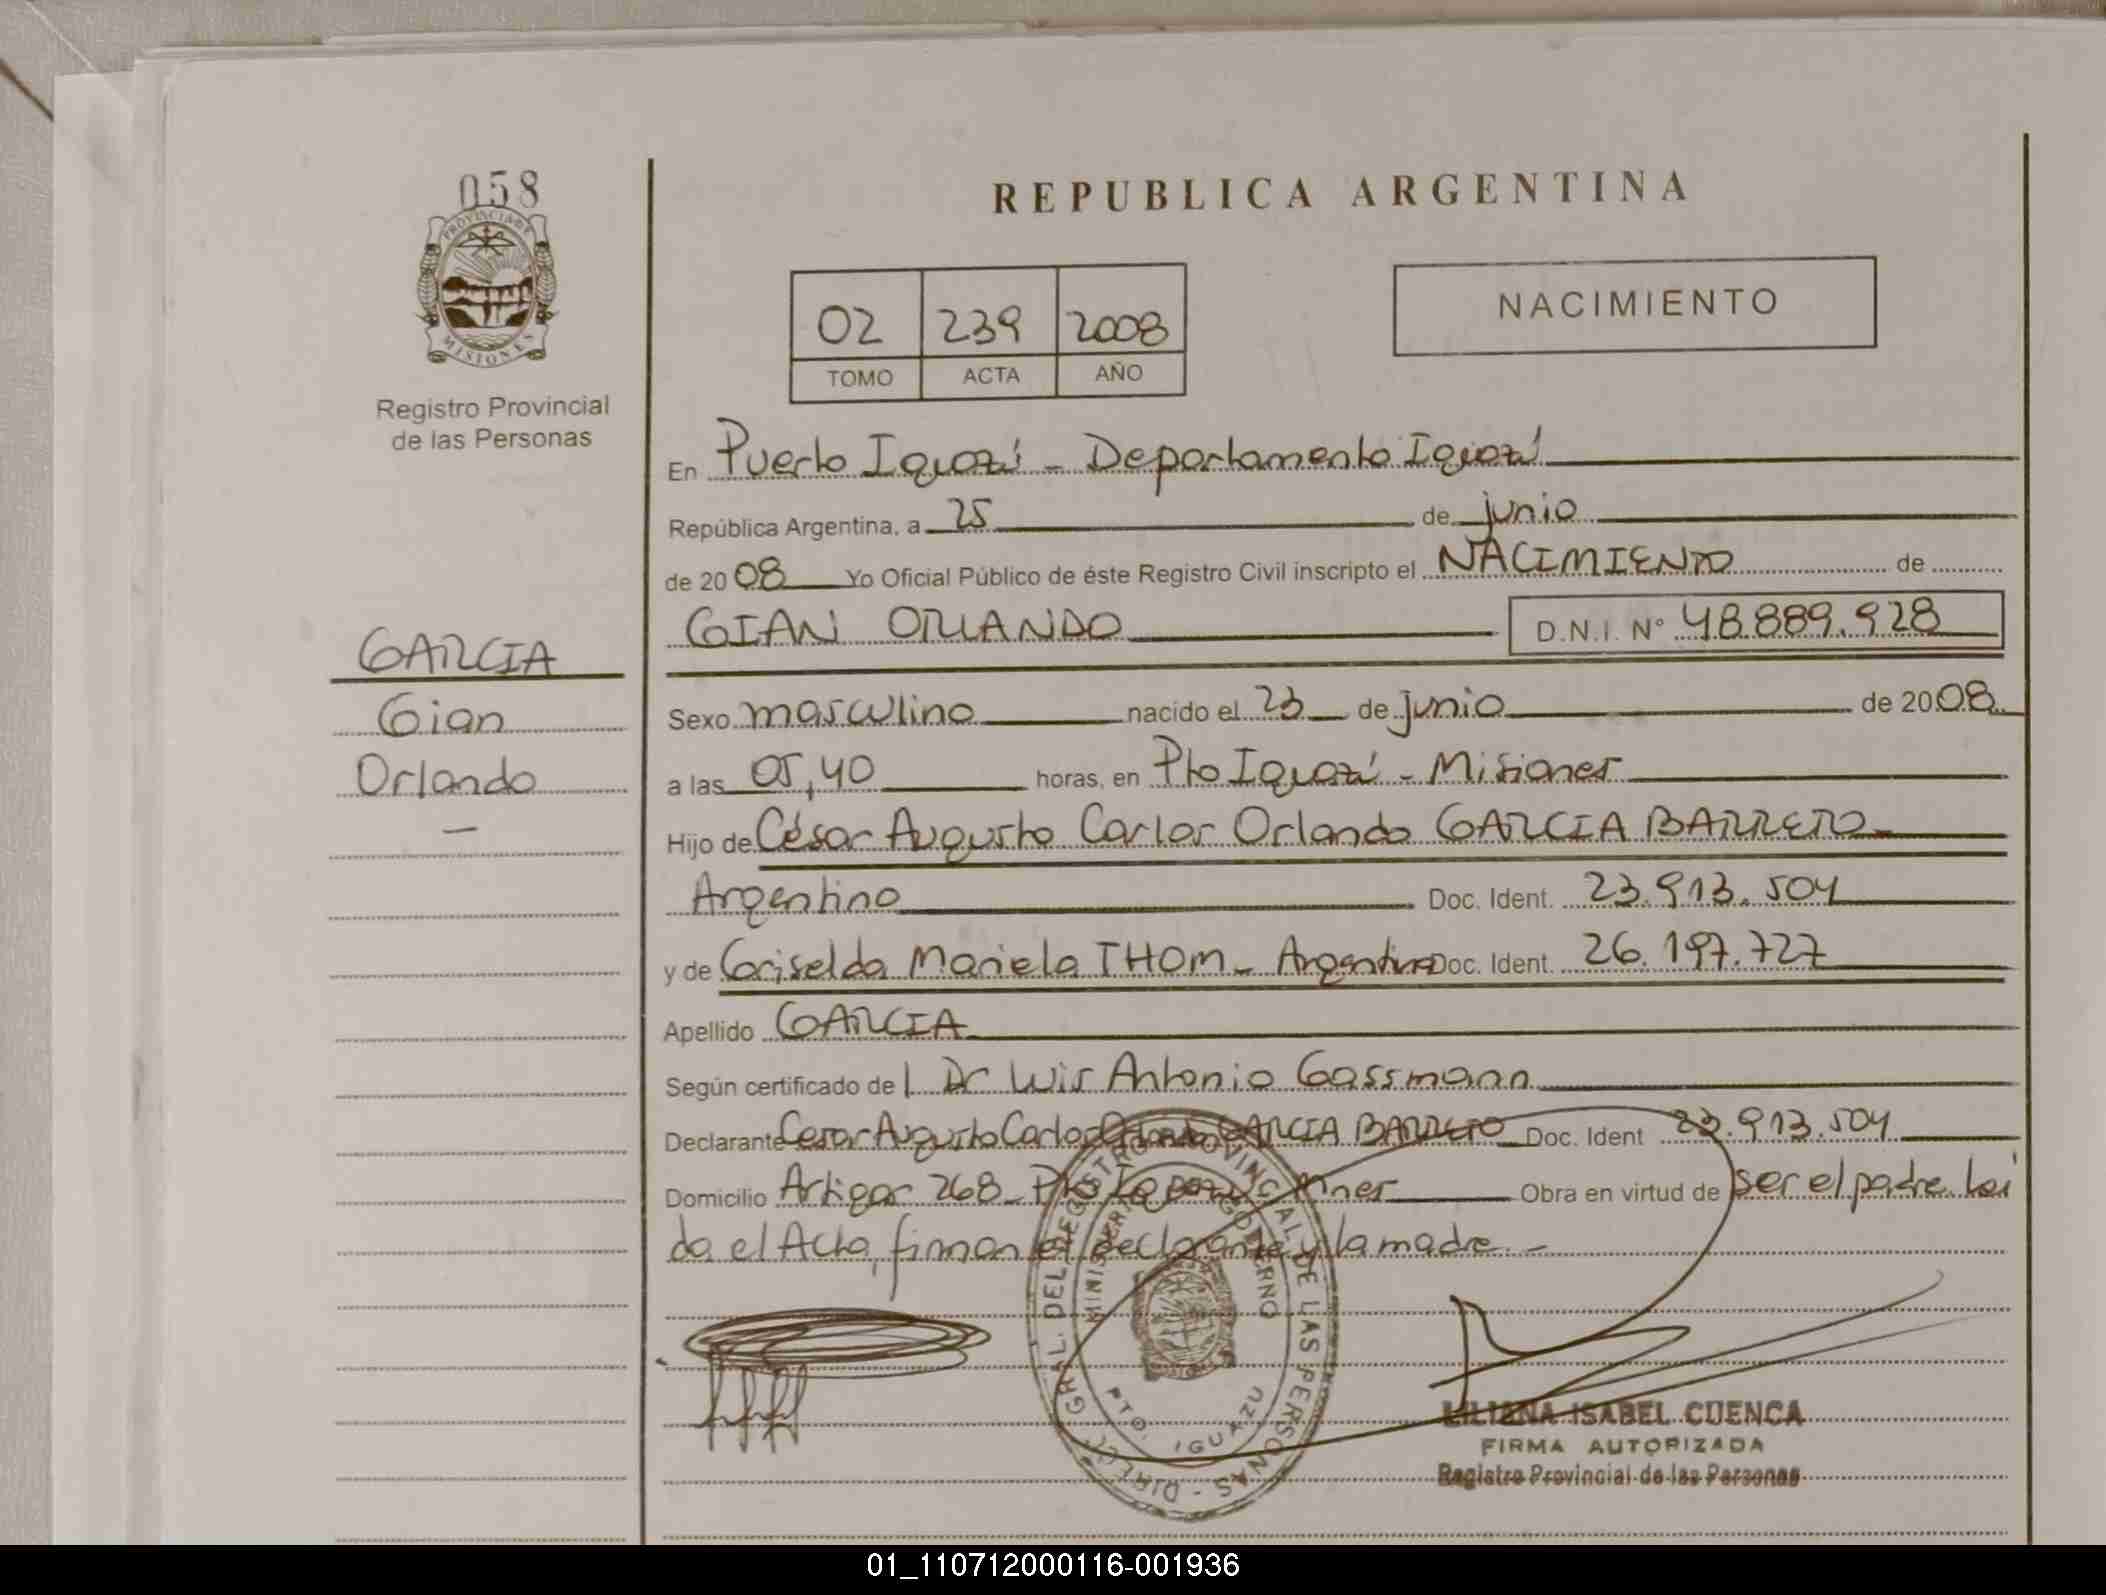 058
PROVINCIA DE
MISIONES
Registro Provincial
de las Personas
GARCIA
Gian
Orlando
—
REPUBLICA ARGENTINA
02 239 2008
TOMO ACTA AÑO
NACIMIENTO
En Puerto Iguazú - Departamento Iguazú
República Argentina, a 25 de junio
de 2008 Yo Oficial Público de éste Registro Civil inscripto el NACIMIENTO de
GIAN ORLANDO D.N.I. N° 48.889.928
Sexo masculino nacido el 23 de junio de 2008
a las 05,40 horas, en Pto Iguazú - Misiones
Hijo de César Augusto Carlos Orlando GARCIA BARRETO
Argentino Doc. Ident. 23.913.504
y de Griselda Mariela THOM - Argentina Doc. Ident. 26.197.727
Apellido GARCIA
Según certificado de l Dr Luis Antonio Gassmann
Declarante Cesar Augusto Carlos Orlando GARCIA BARRETO Doc. Ident 23.913.504
Domicilio Artigas 268 - Pto Iguazú Obra en virtud de ser el padre. Leí
da el Acta, firman el declarante y la madre. -
DIRECC. GRAL. DEL REGISTRO PROVINCIAL DE LAS PERSONAS -
MINISTERIO DE GOBIERNO
PTO. IGUAZU
LILIANA ISABEL CUENCA
FIRMA AUTORIZADA
Registro Provincial de las Personas
01_110712000116-001936